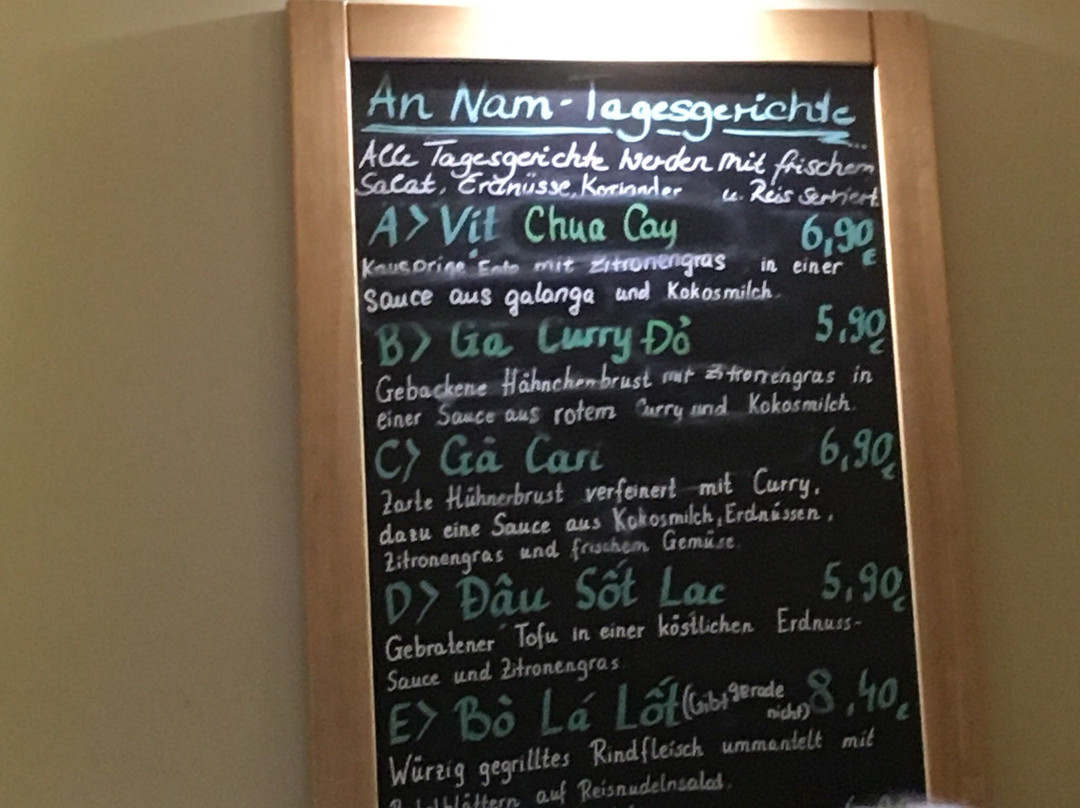 An Nam-Tagesgerichte
Alle Tagesgerichte werden mit frischem
Salat, Erdnüsse, Koriander u. Reis serviert
A> Vit Chua Cay 6,90 €
Knusprige Ente mit Zitronengras in einer
Sauce aus galanga und Kokosmilch.
B> Ga Curry Đỏ 5,90 €
Gebackene Hähnchenbrust mit Zitronengras in
einer Sauce aus rotem Curry und Kokosmilch.
C> Gà Cari 6,90 €
Zarte Hühnerbrust verfeinert mit Curry,
dazu eine Sauce aus Kokosmilch, Erdnüssen,
Zitronengras und frischem Gemüse.
D> Đâu Sốt Lac 5,90 €
Gebratener Tofu in einer köstlichen Erdnuss-
Sauce und Zitronengras.
E> Bò Lá Lốt (Gibt gerade nicht) 8,40 €
Würzig gegrilltes Rindfleisch ummantelt mit
auf Reisnudelnsalat.